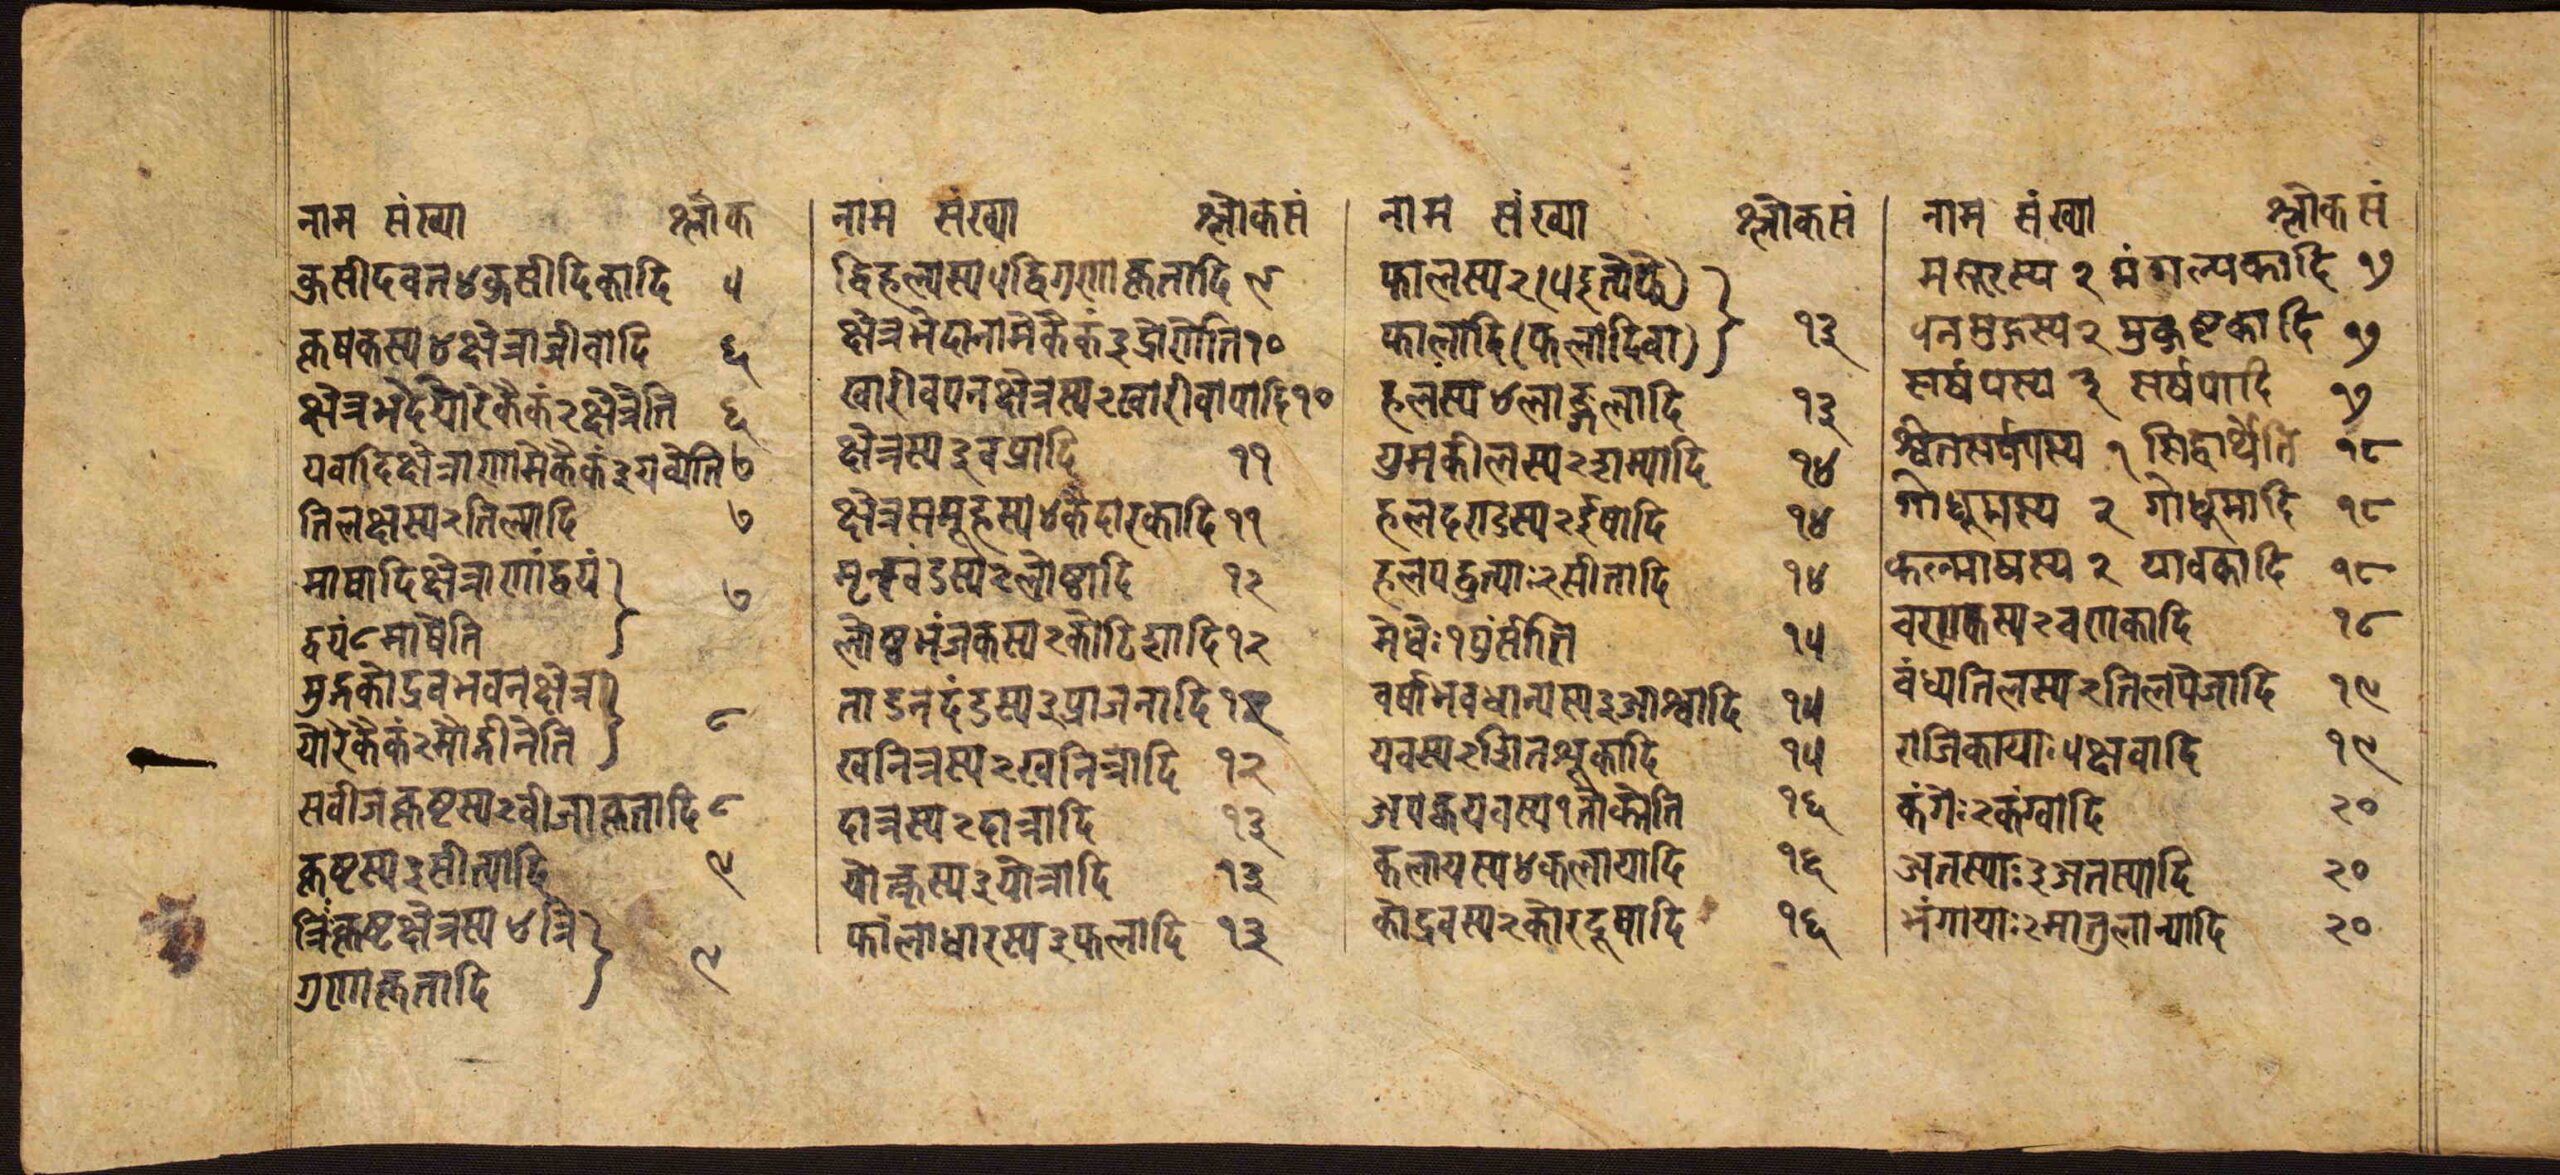 नाम संख्या श्लोक
कुसीदवत४कुसीदिकादि ५
कृषकस्य४क्षेत्राजीवादि ६
क्षेत्रभेदयोरेकैकं२क्षेत्रेति ६
यवादिक्षेत्राणामेकैकं३यव्येति ७
तिलक्षस्य२तिल्यादि ७
माषादिक्षेत्राणांद्वयं
द्वयं८माषेति ७
मुद्गकोद्रवभवनक्षेत्र
योरेकैकं२मौद्गीनेति ८
सबीजकृष्टस्य२बीजाकृतादि ८
कृष्टस्य३सीत्यादि ९
त्रिःकृष्टक्षेत्रस्य४त्रि
गुणाकृतादि ९
नाम संख्या श्लोकसं
द्विहल्यस्य५द्विगुणाकृतादि ९
क्षेत्रभेदानामेकैकं३द्रोणेति १०
खारीवपनक्षेत्रस्य२खारीवापादि १०
क्षेत्रस्य३वप्रादि ११
क्षेत्रसमूहस्य४कैदारकादि ११
मृत्खंडस्य२लोष्ठादि १२
लोष्ठभंजकस्य२कोटिशादि १२
ताडनदंडस्य३प्राजनादि १२
खनित्रस्य२खनित्रादि १२
दात्रस्य२दात्रादि १३
योत्क्रस्य३योत्रादि १३
फालाधारस्य३फलादि १३
नाम संख्या श्लोकसं
फालस्य२(५इत्येके)
फालादि(फलादिवा) १३
हलस्य४लाङ्गलादि १३
युगकीलस्य२शम्यादि १४
हलदण्डस्य२ईषादि १४
हलपद्धत्याः२सीतादि १४
मेधेः१पुंसीति १५
वर्षाभवधान्यस्य३आश्वादि १५
यवस्य२शितशूकादि १५
अपक्वयवस्य१तोक्मेति १६
कलायस्य४कलायादि १६
कोद्रवस्य२कोरदूषादि १६
नाम संख्या श्लोकसं
मसूरस्य २ मंगल्यकादि १७
वनमुद्गस्य २ मुकुष्टकादि १७
सर्षपस्य ३ सर्षपादि १७
श्वेतसर्षपस्य १ सिद्धार्थेति १८
गोधूमस्य २ गोधूमादि १८
कुल्माषस्य २ यावकादि १८
चणकस्य२चणकादि १८
वंध्यतिलस्य२तिलपेजादि १९
राजिकायाः५क्षवादि १९
कंगोः२कंग्वादि २०
अतस्याः३अतस्यादि २०
भंगायाः२मातुलान्यादि २०